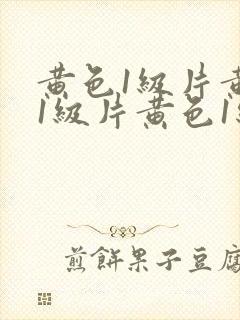 黄色1級片黄
1級片黄色1級
煎餅果子豆腐